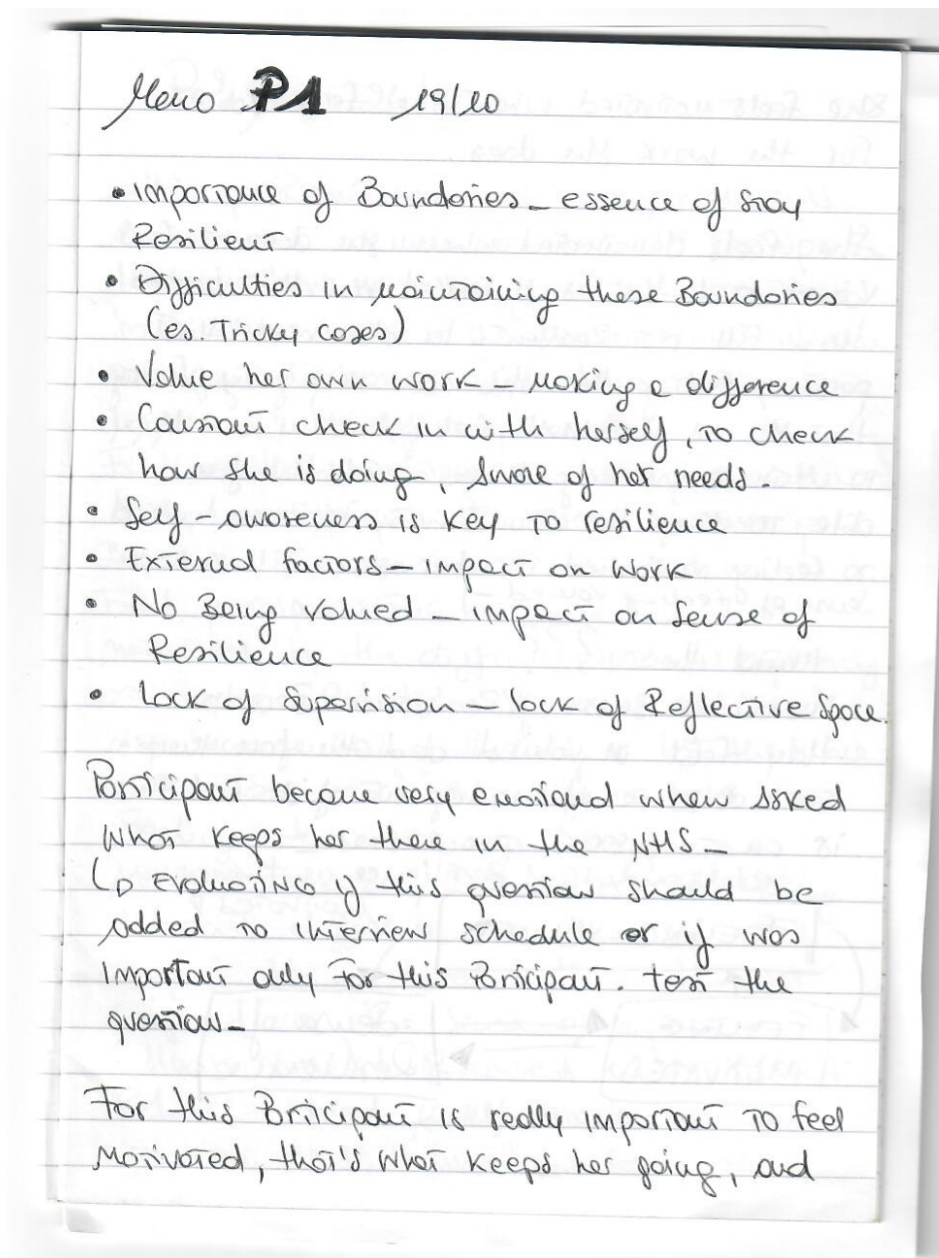 Memo P1 19/10
• Importance of Boundaries - essence of stay
Resilient
• Difficulties in maintaining these Boundaries
(es. Tricky cases)
• Value her own work - making a difference
• Constant check in with herself, to check
how she is doing, aware of het needs.
• Self-awareness is key to resilience
• External factors - impact on work
• No Being valued - impact on sense of
Resilience
• Lack of Supervision - lack of Reflective Space
Participant become very emotional when asked
what keeps her there in the NHS -
↳ Evaluating if this question should be
added to interview schedule or if was
important only for this Participant. test the
question -
For this Participant is really important to feel
motivated, that's what keeps her going, and